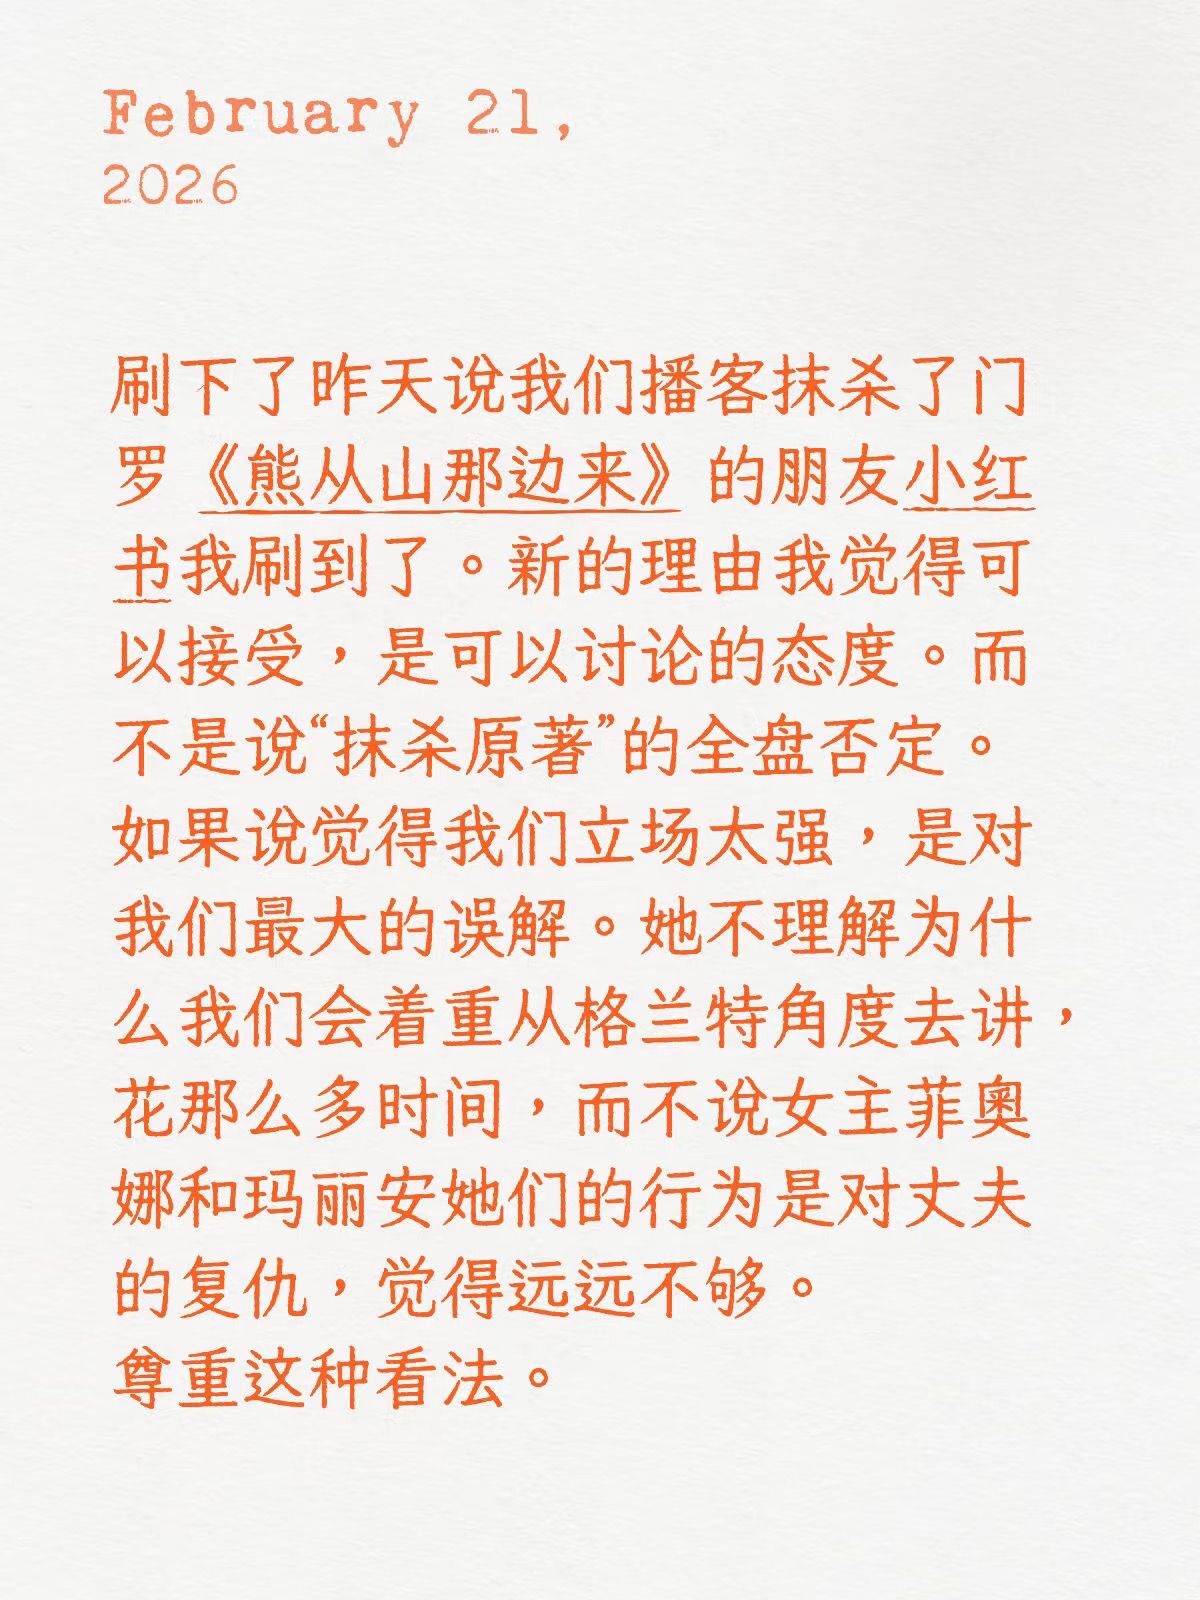 February 21,
2026
刷下了昨天说我们播客抹杀了门
罗《熊从山那边来》的朋友小红
书我刷到了。新的理由我觉得可
以接受，是可以讨论的态度。而
不是说“抹杀原著”的全盘否定。
如果说觉得我们立场太强，是对
我们最大的误解。她不理解为什
么我们会着重从格兰特角度去讲，
花那么多时间，而不说女主菲奥
娜和玛丽安她们的行为是对丈夫
的复仇，觉得远远不够。
尊重这种看法。